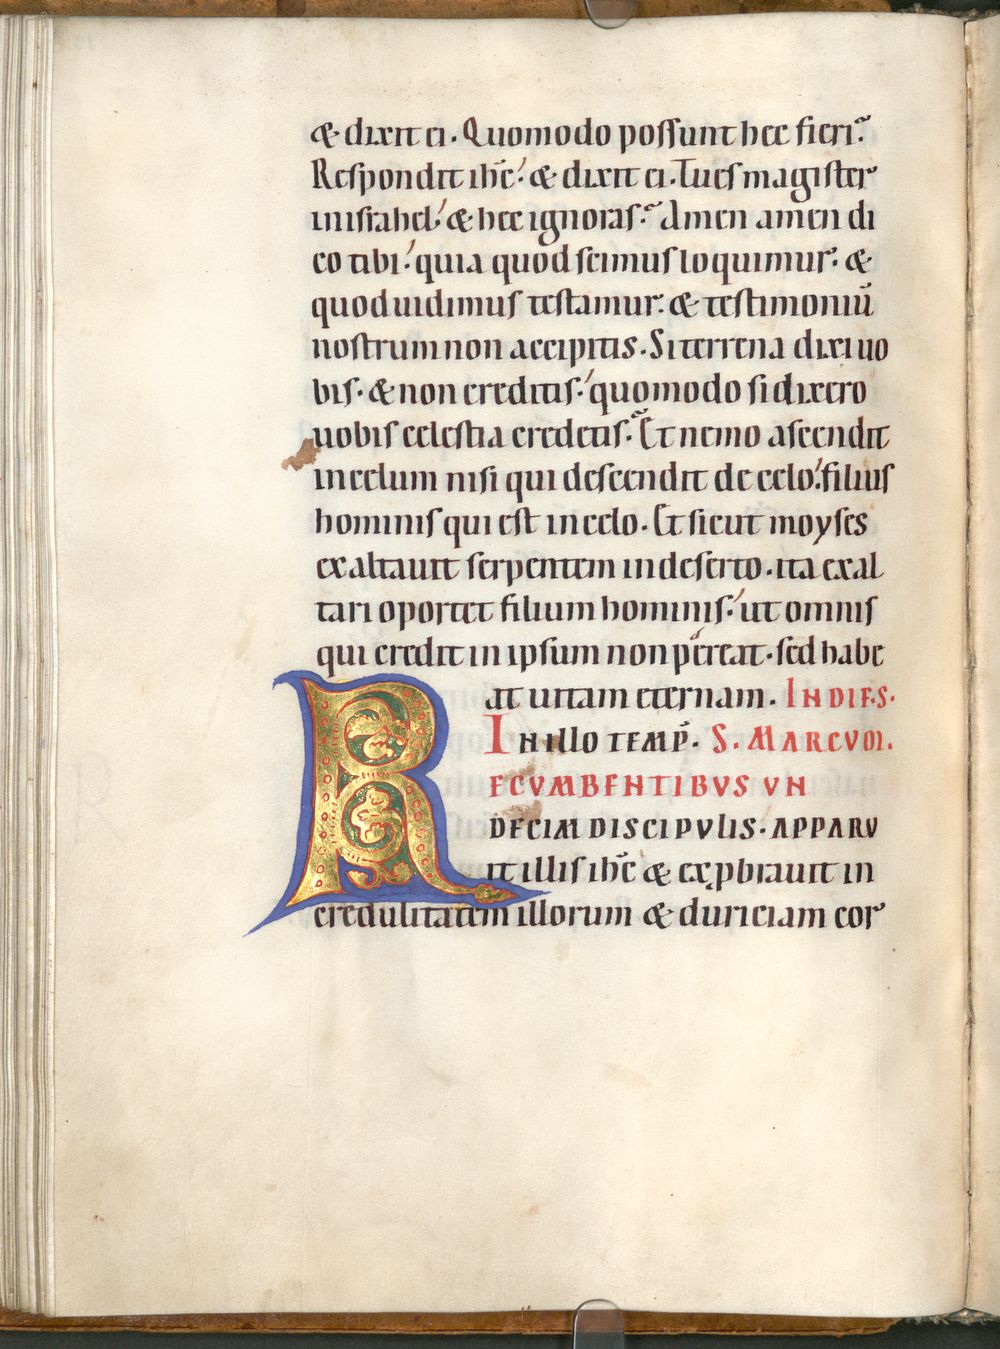 & dixit ei. Quomodo possunt hec fieri?
Respondit ihc̄. & dixit ei. Tu es magister
in israhel. & hec ignoras? Amen amen di
co tibi. quia quod scimus loquimur. &
quod uidimus testamur. & testimoniū
nostrum non accipitis. Si terrena dixi uo
bis. & non creditis. quomodo si dixero
uobis celestia credetis? Et nemo ascendit
in celum nisi qui descendit de celo. filius
hominis qui est in celo. Et sicut moyses
exaltauit serpentem in deserto. ita exal
tari oportet filium hominis. ut omnis
qui credit in ipsum non pereat. sed habe
at uitam eternam. IN DIE S.
IN ILLO TEMP̄. S. MARCUM.
RECUMBENTIBUS UN
DECIM DISCIPULIS. APPARU
it illis ihc̄ & exp̱brauit in
credulitatem illorum & duriciam cor